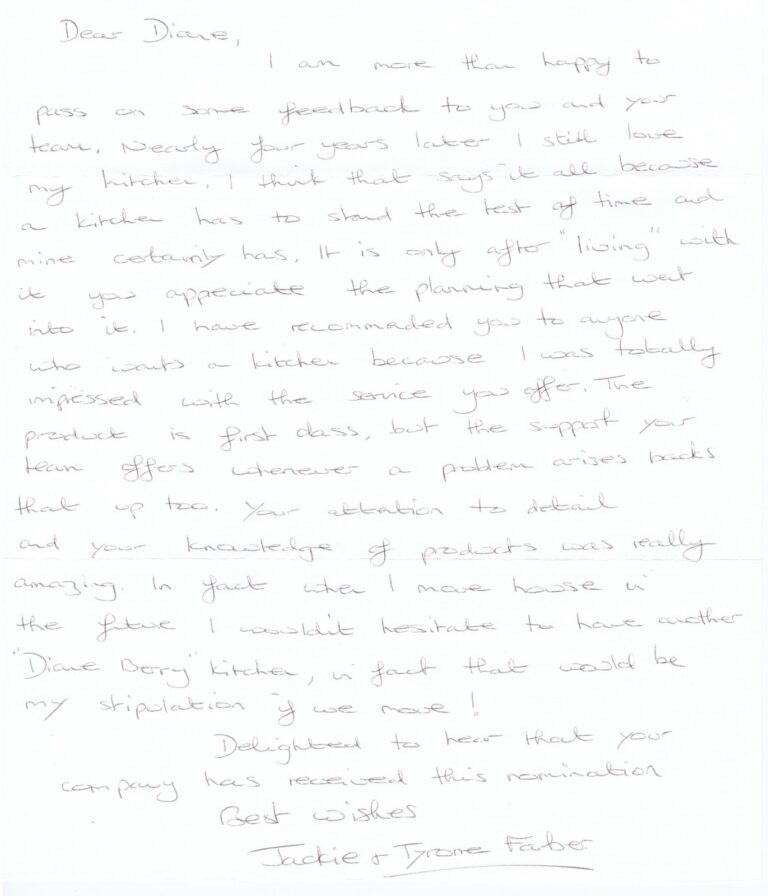 Dear Diane,
I am more than happy to
pass on some feedback to you and your
team. Nearly four years later I still love
my kitchen. I think that says it all because
a kitchen has to stand the test of time and
mine certainly has. It is only after "living" with
it you appreciate the planning that went
into it. I have recommaded you to anyone
who wants a kitchen because I was totally
impressed with the service you offer. The
product is first class, but the support your
team offers whenever a problem arises backs
that up too. Your attention to detail
and your knowledge of products was really
amazing. In fact when I move house in
the future I wouldn't hesitate to have another
"Diane Berry" kitchen, in fact that would be
my stipulation if we move!
Delighted to hear that your
company has received this nomination
Best wishes
Jackie & Tyrone Farber